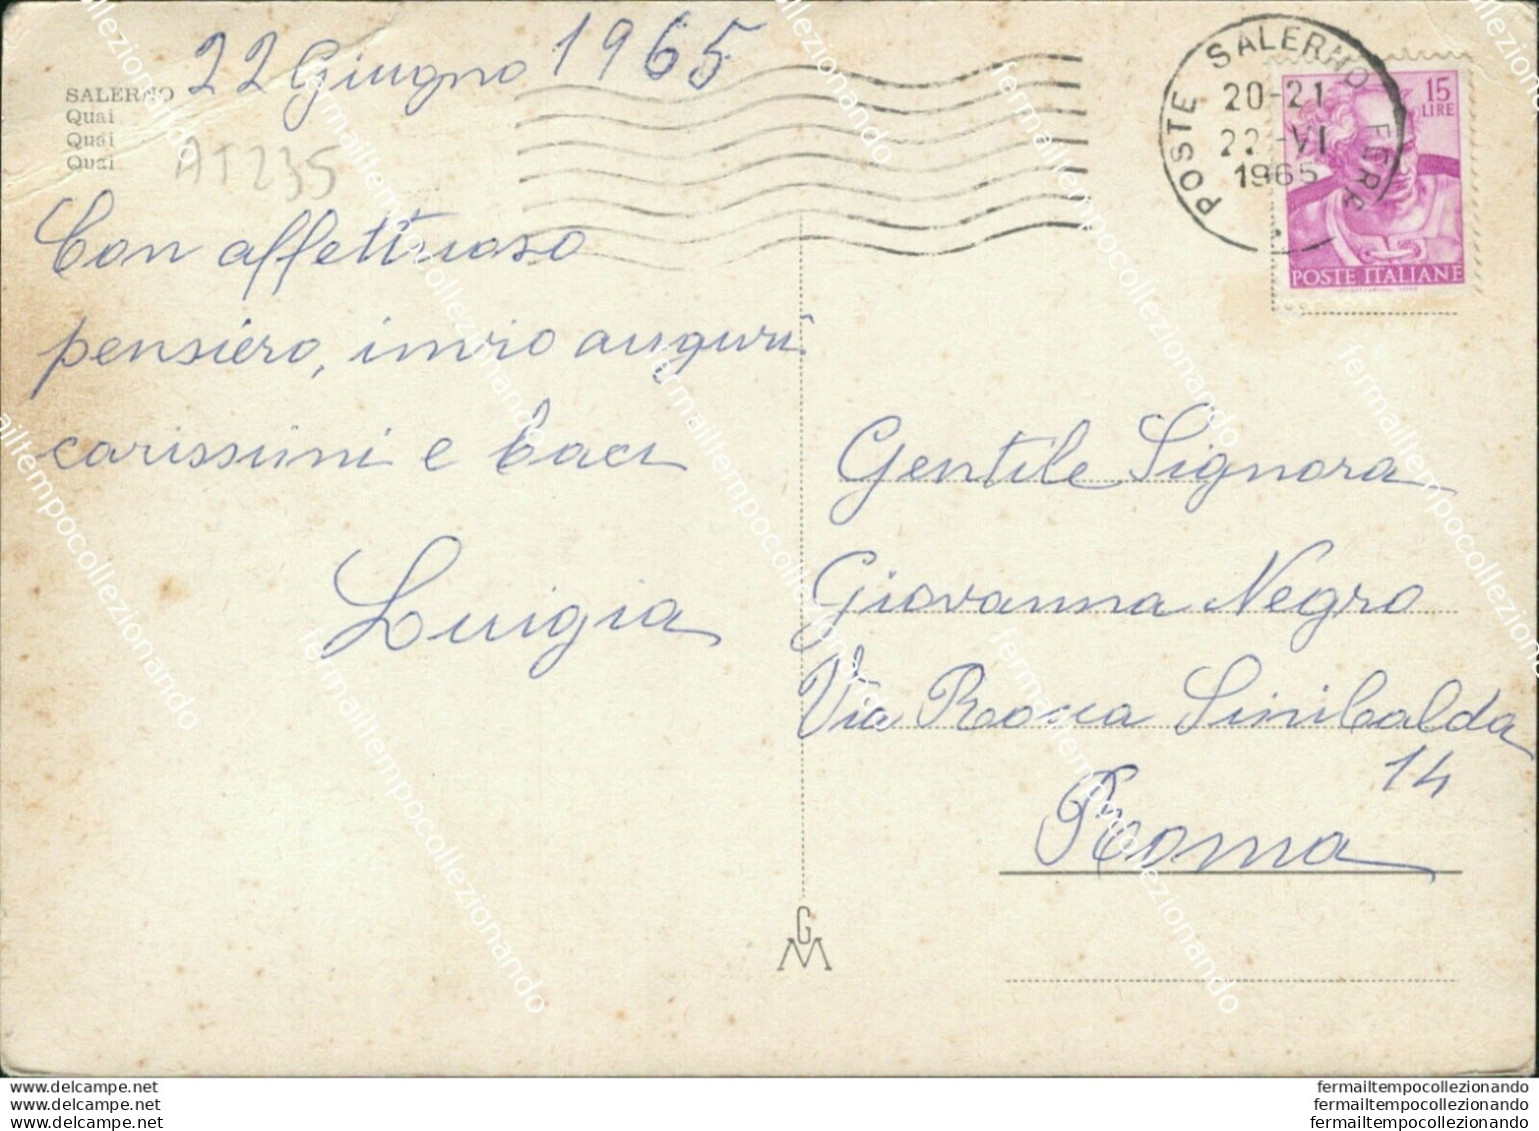 22 Giugno 1965
SALERNO
Quai
Quai
Quai
AT235
Con affettuoso
pensiero, invio auguri
carissimi e baci
Luigia
POSTE SALERNO FERR
20-21
22-VI
1965
15
LIRE
POSTE ITALIANE
Gentile Signora
Giovanna Negro
Via Rocca Sinibalda
14
Roma
GM
delcampe.net
delcampe.net
delcampe.net
fermailtempocollezionando
fermailtempocollezionando
fermailtempocollezionando